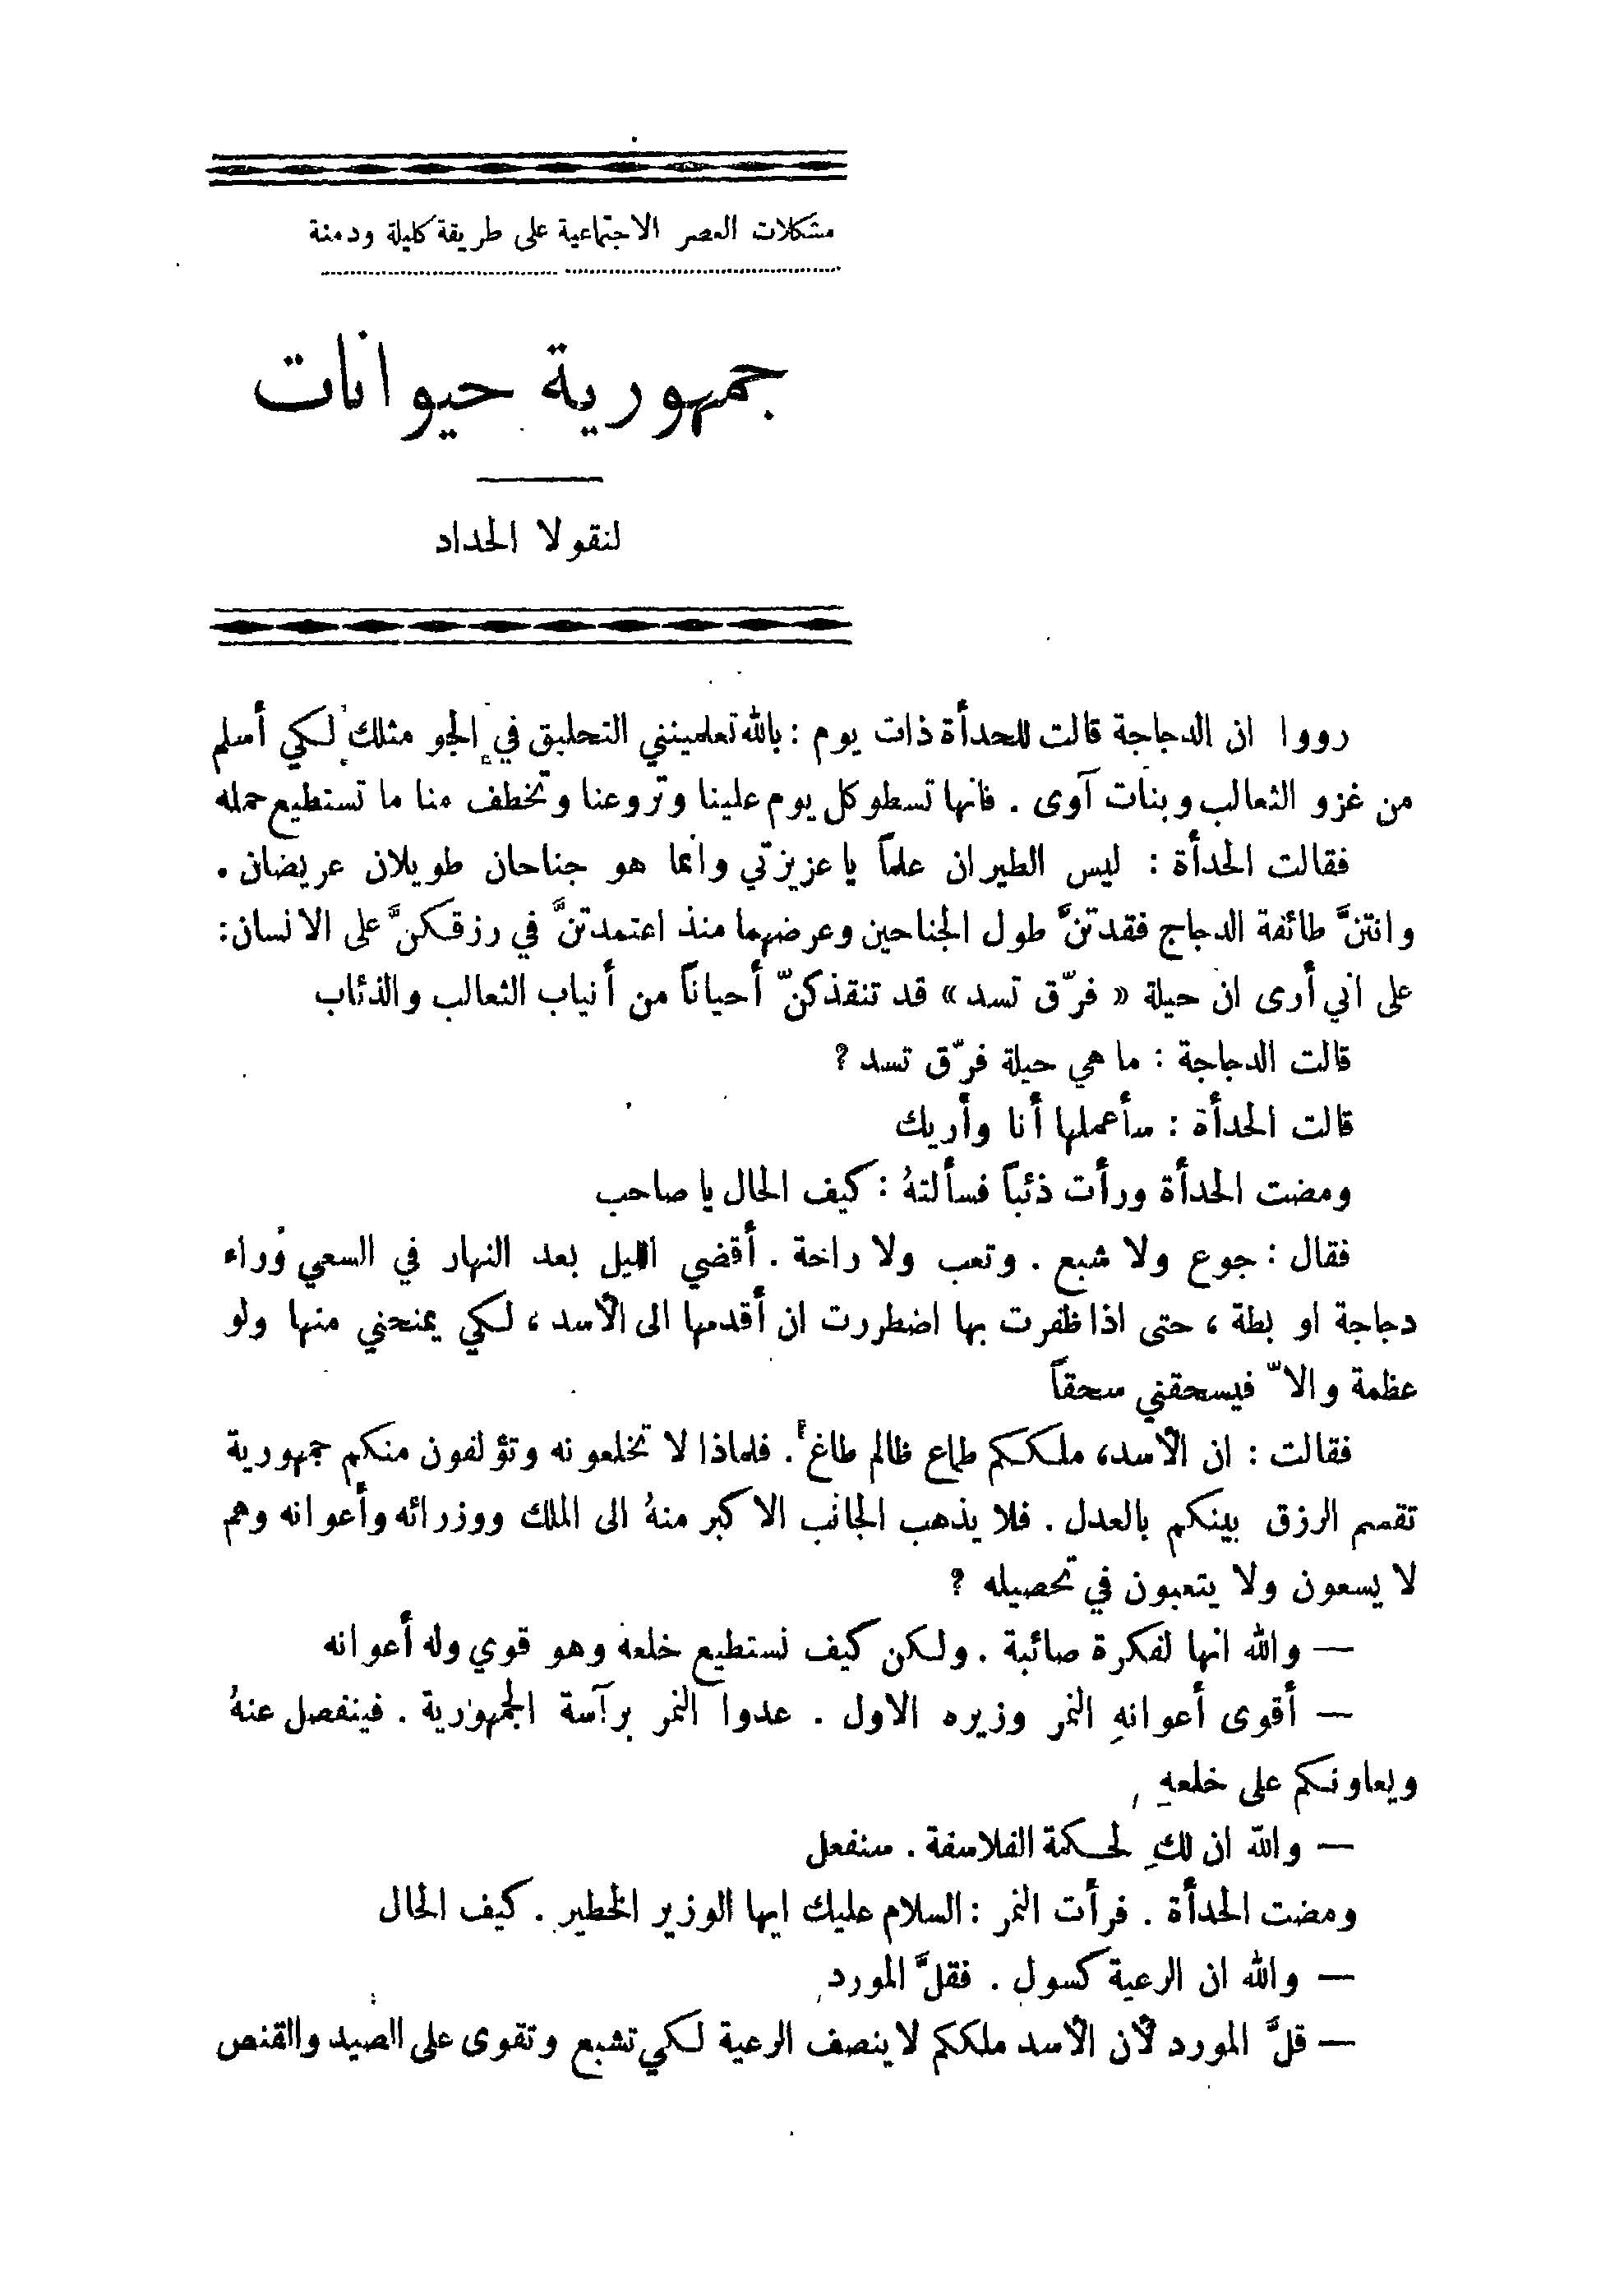 مشكلات العصر الاجتماعية على طريقة كليلة ودمنة
جمهورية حيوانات
لنقولا الحداد
رووا ان الدجاجة قالت للحدأة ذات يوم : بالله تعلمينني التحليق في الجو مثلك لكي أسلم
من غزو الثعالب وبنات آوى . فانها تسطو كل يوم علينا وتروعنا وتخطف منا ما تستطيع حمله
فقالت الحدأة : ليس الطيران علماً يا عزيزتي وانما هو جناحان طويلان عريضان .
وانتنَّ طائفة الدجاج فقدتنَّ طول الجناحين وعرضهما منذ اعتمدتنَّ في رزقكنَّ على الانسان:
على اني أرى ان حيلة « فرّق تسد » قد تنقذكنّ أحياناً من أنياب الثعالب والذئاب
قالت الدجاجة : ما هي حيلة فرّق تسد ?
قالت الحدأة : سأعملها أنا وأريك
ومضت الحدأة ورأت ذئباً فسألتهُ : كيف الحال يا صاحب
فقال : جوع ولا شبع . وتعب ولا راحة . أقضي الليل بعد النهار في السعي وراء
دجاجة او بطة ، حتى اذا ظفرت بها اضطررت ان أقدمها الى الأسد ، لكي يمنحني منها ولو
عظمة والاّ فيسحقني سحقاً
فقالت : ان الأسد، ملككم طماع ظالم طاغٍ . فلماذا لا تخلعونه وتؤلفون منكم جمهورية
تقسم الرزق بينكم بالعدل . فلا يذهب الجانب الاكبر منهُ الى الملك ووزرائه وأعوانه وهم
لا يسعون ولا يتعبون في تحصيله ?
— والله انها لفكرة صائبة . ولكن كيف نستطيع خلعه وهو قوي وله أعوانه
— أقوى أعوانهِ النمر وزيره الاول . عدوا النمر برآسة الجمهورية . فينفصل عنهُ
ويعاونكم على خلعهِ
— والله ان لكِ لحكمة الفلاسفة . سنفعل
ومضت الحدأة . فرأت النمر : السلام عليك ايها الوزير الخطير . كيف الحال
— والله ان الرعية كسول . فقلَّ المورد
— قلَّ المورد لأن الأسد ملككم لا ينصف الرعية لكي تشبع وتقوى على الصيد والقنص